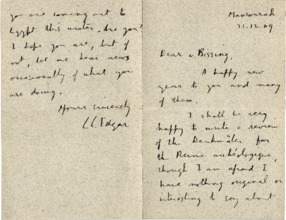 Mansourah
21.12.09
Dear v. Bissing,
A happy new
years to you and many
of them.
I shall be very
happy to write a review
of the Denkmäler for
the Revue archéologique,
though I am afraid I
have nothing original or
interesting to say about
you are coming out to
Egypt this winter, are you?
I hope you are, but if
not, let me hear news
occasionally of what you
are doing.
Yours sincerely
C C Edgar